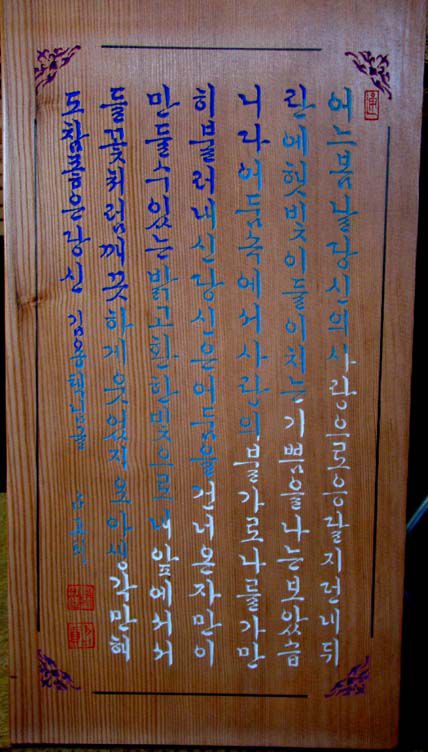 어느봄날당신의사랑으로응달지던내뒤
란에햇빛이들이치는기쁨을나는보았습
니다어둠속에서사랑의불가로나를가만
히불러내신당신은어둠을건너온자만이
만들수있는밝고환한빛으로내앞에서서
들꽃처럼깨끗하게웃었지요아생각만해
도참좋은당신 김용택님글